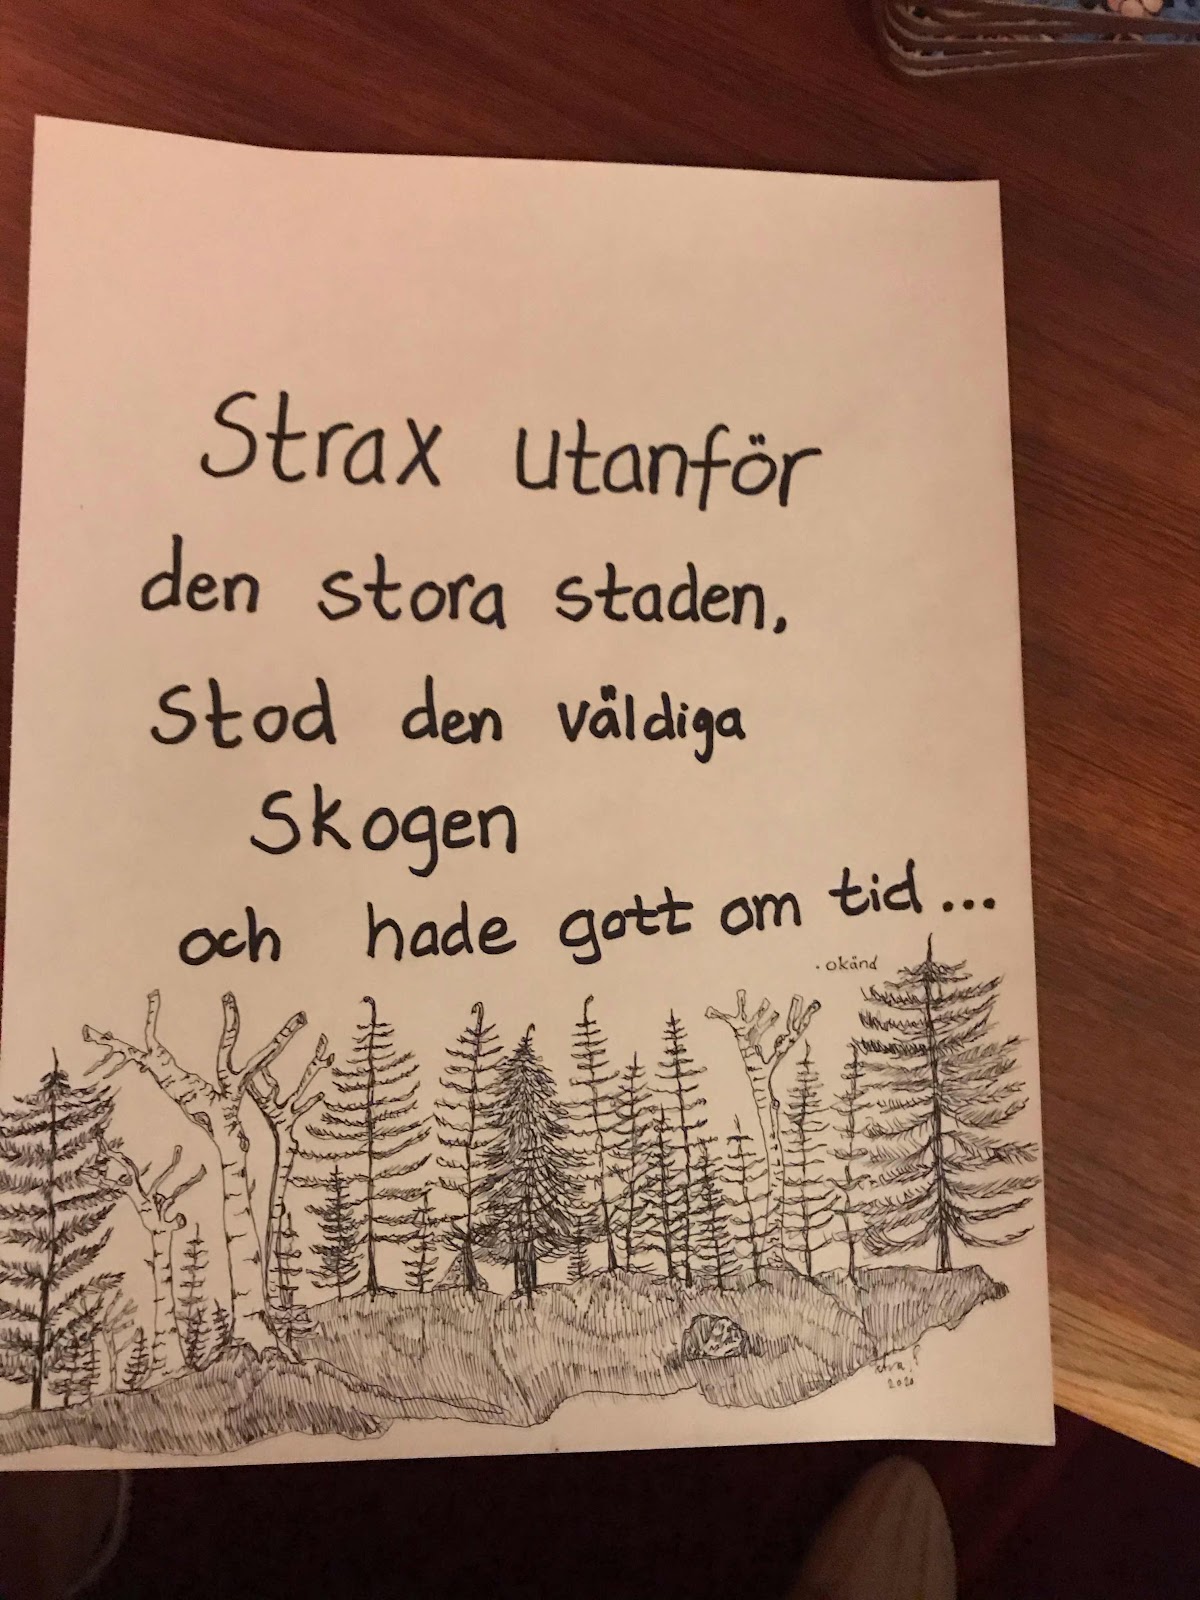 Strax utanför
den stora staden,
Stod den väldiga
Skogen
och hade gott om tid...
. okänd